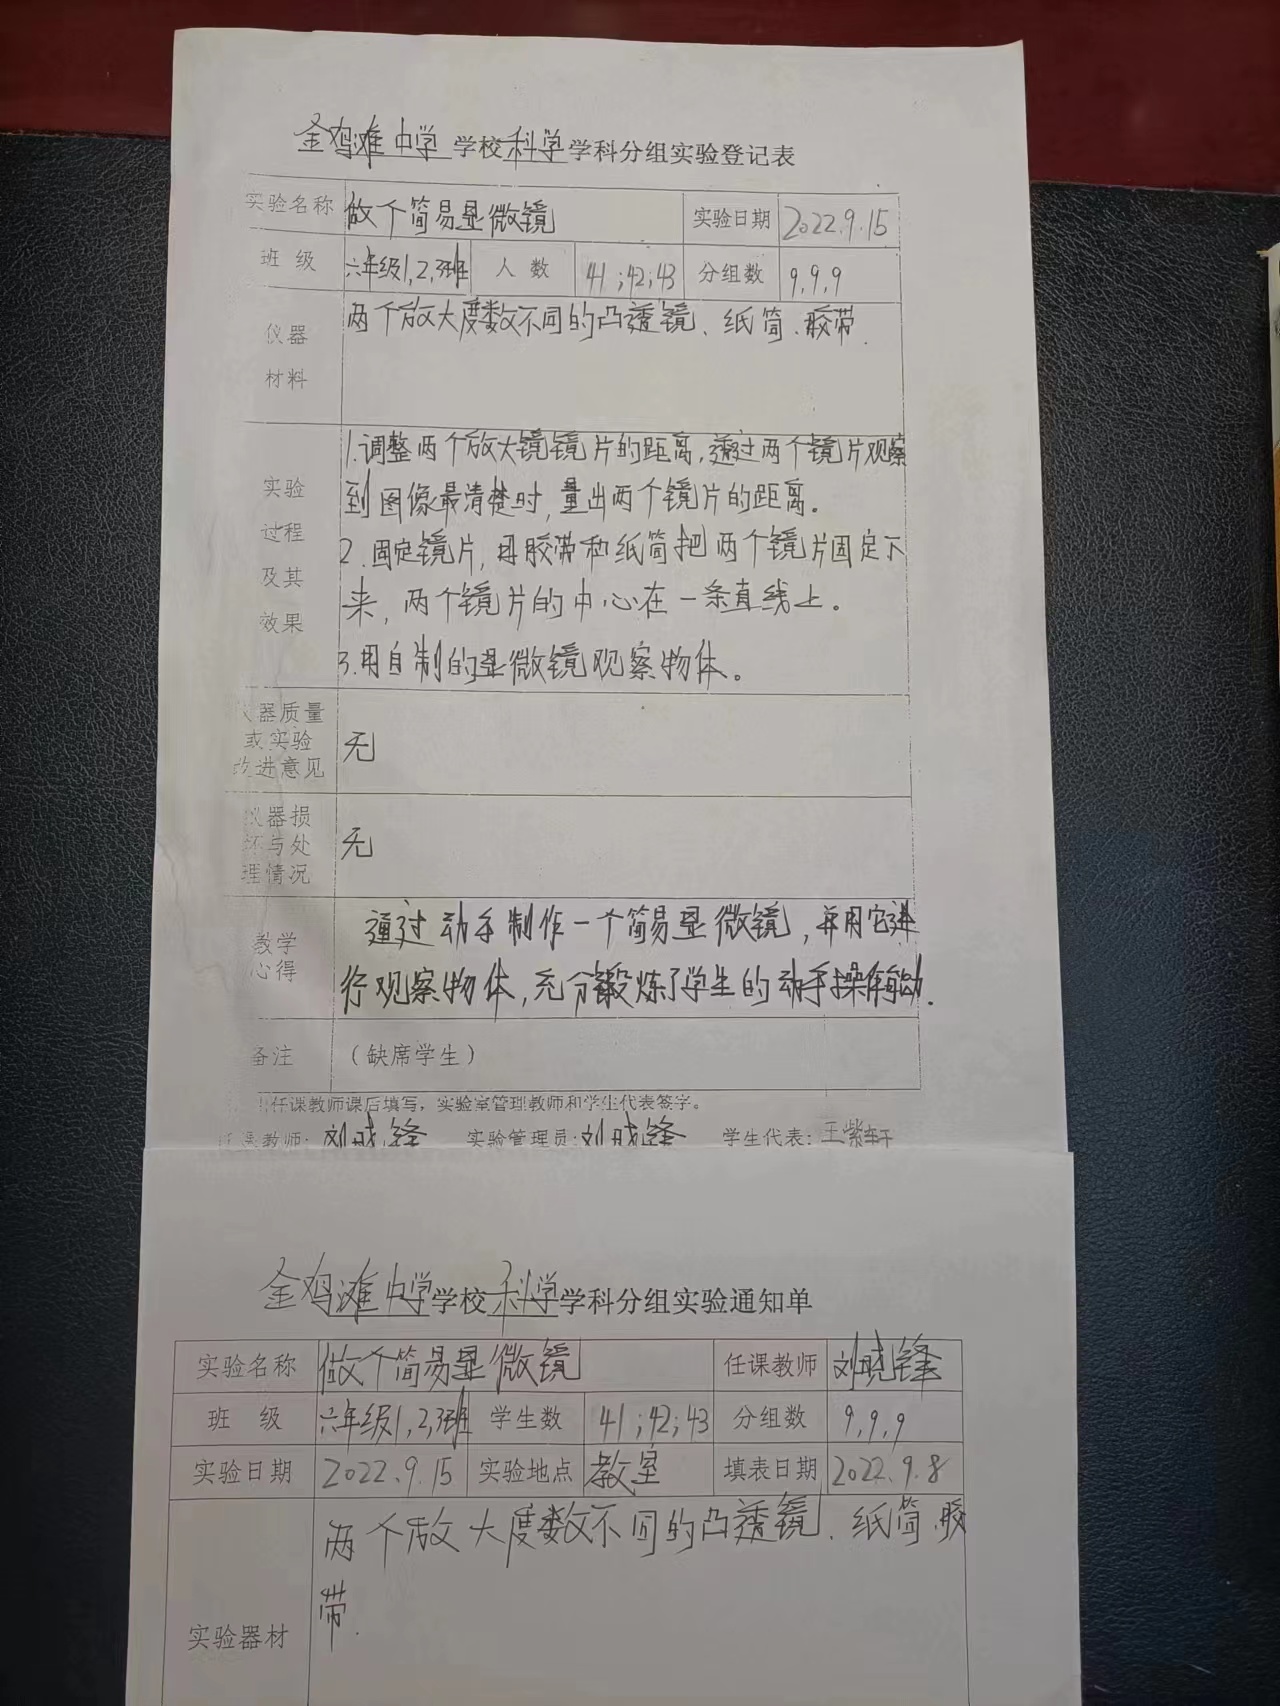 金鸡滩中学学校科学学科分组实验登记表
实验名称 做个简易显微镜 实验日期 2022.9.15
班 级 六年级1,2,3班 人 数 41;42;43 分组数 9,9,9
仪器
材料
两个放大度数不同的凸透镜、纸筒、胶带.
实验
过程
及其
效果
1.调整两个放大镜镜片的距离,通过两个镜片观察
到图像最清楚时,量出两个镜片的距离。
2.固定镜片,用胶带和纸筒把两个镜片固定下
来,两个镜片的中心在一条直线上。
3.用自制的显微镜观察物体。
仪器质量
或实验
改进意见
无
仪器损
坏与处
理情况
无
教学
心得
通过动手制作一个简易显微镜,并用它进
行观察物体,充分锻炼了学生的动手操作能力.
备注 (缺席学生)
任课教师课后填写,实验室管理教师和学生代表签字。
任课教师:刘晓锋 实验管理员:刘晓锋 学生代表:王紫轩
金鸡滩中学学校科学学科分组实验通知单
实验名称 做个简易显微镜 任课教师 刘晓锋
班 级 六年级1,2,3班 学生数 41;42;43 分组数 9,9,9
实验日期 2022.9.15 实验地点 教室 填表日期 2022.9.8
实验器材
两个放大度数不同的凸透镜、纸筒、胶
带.